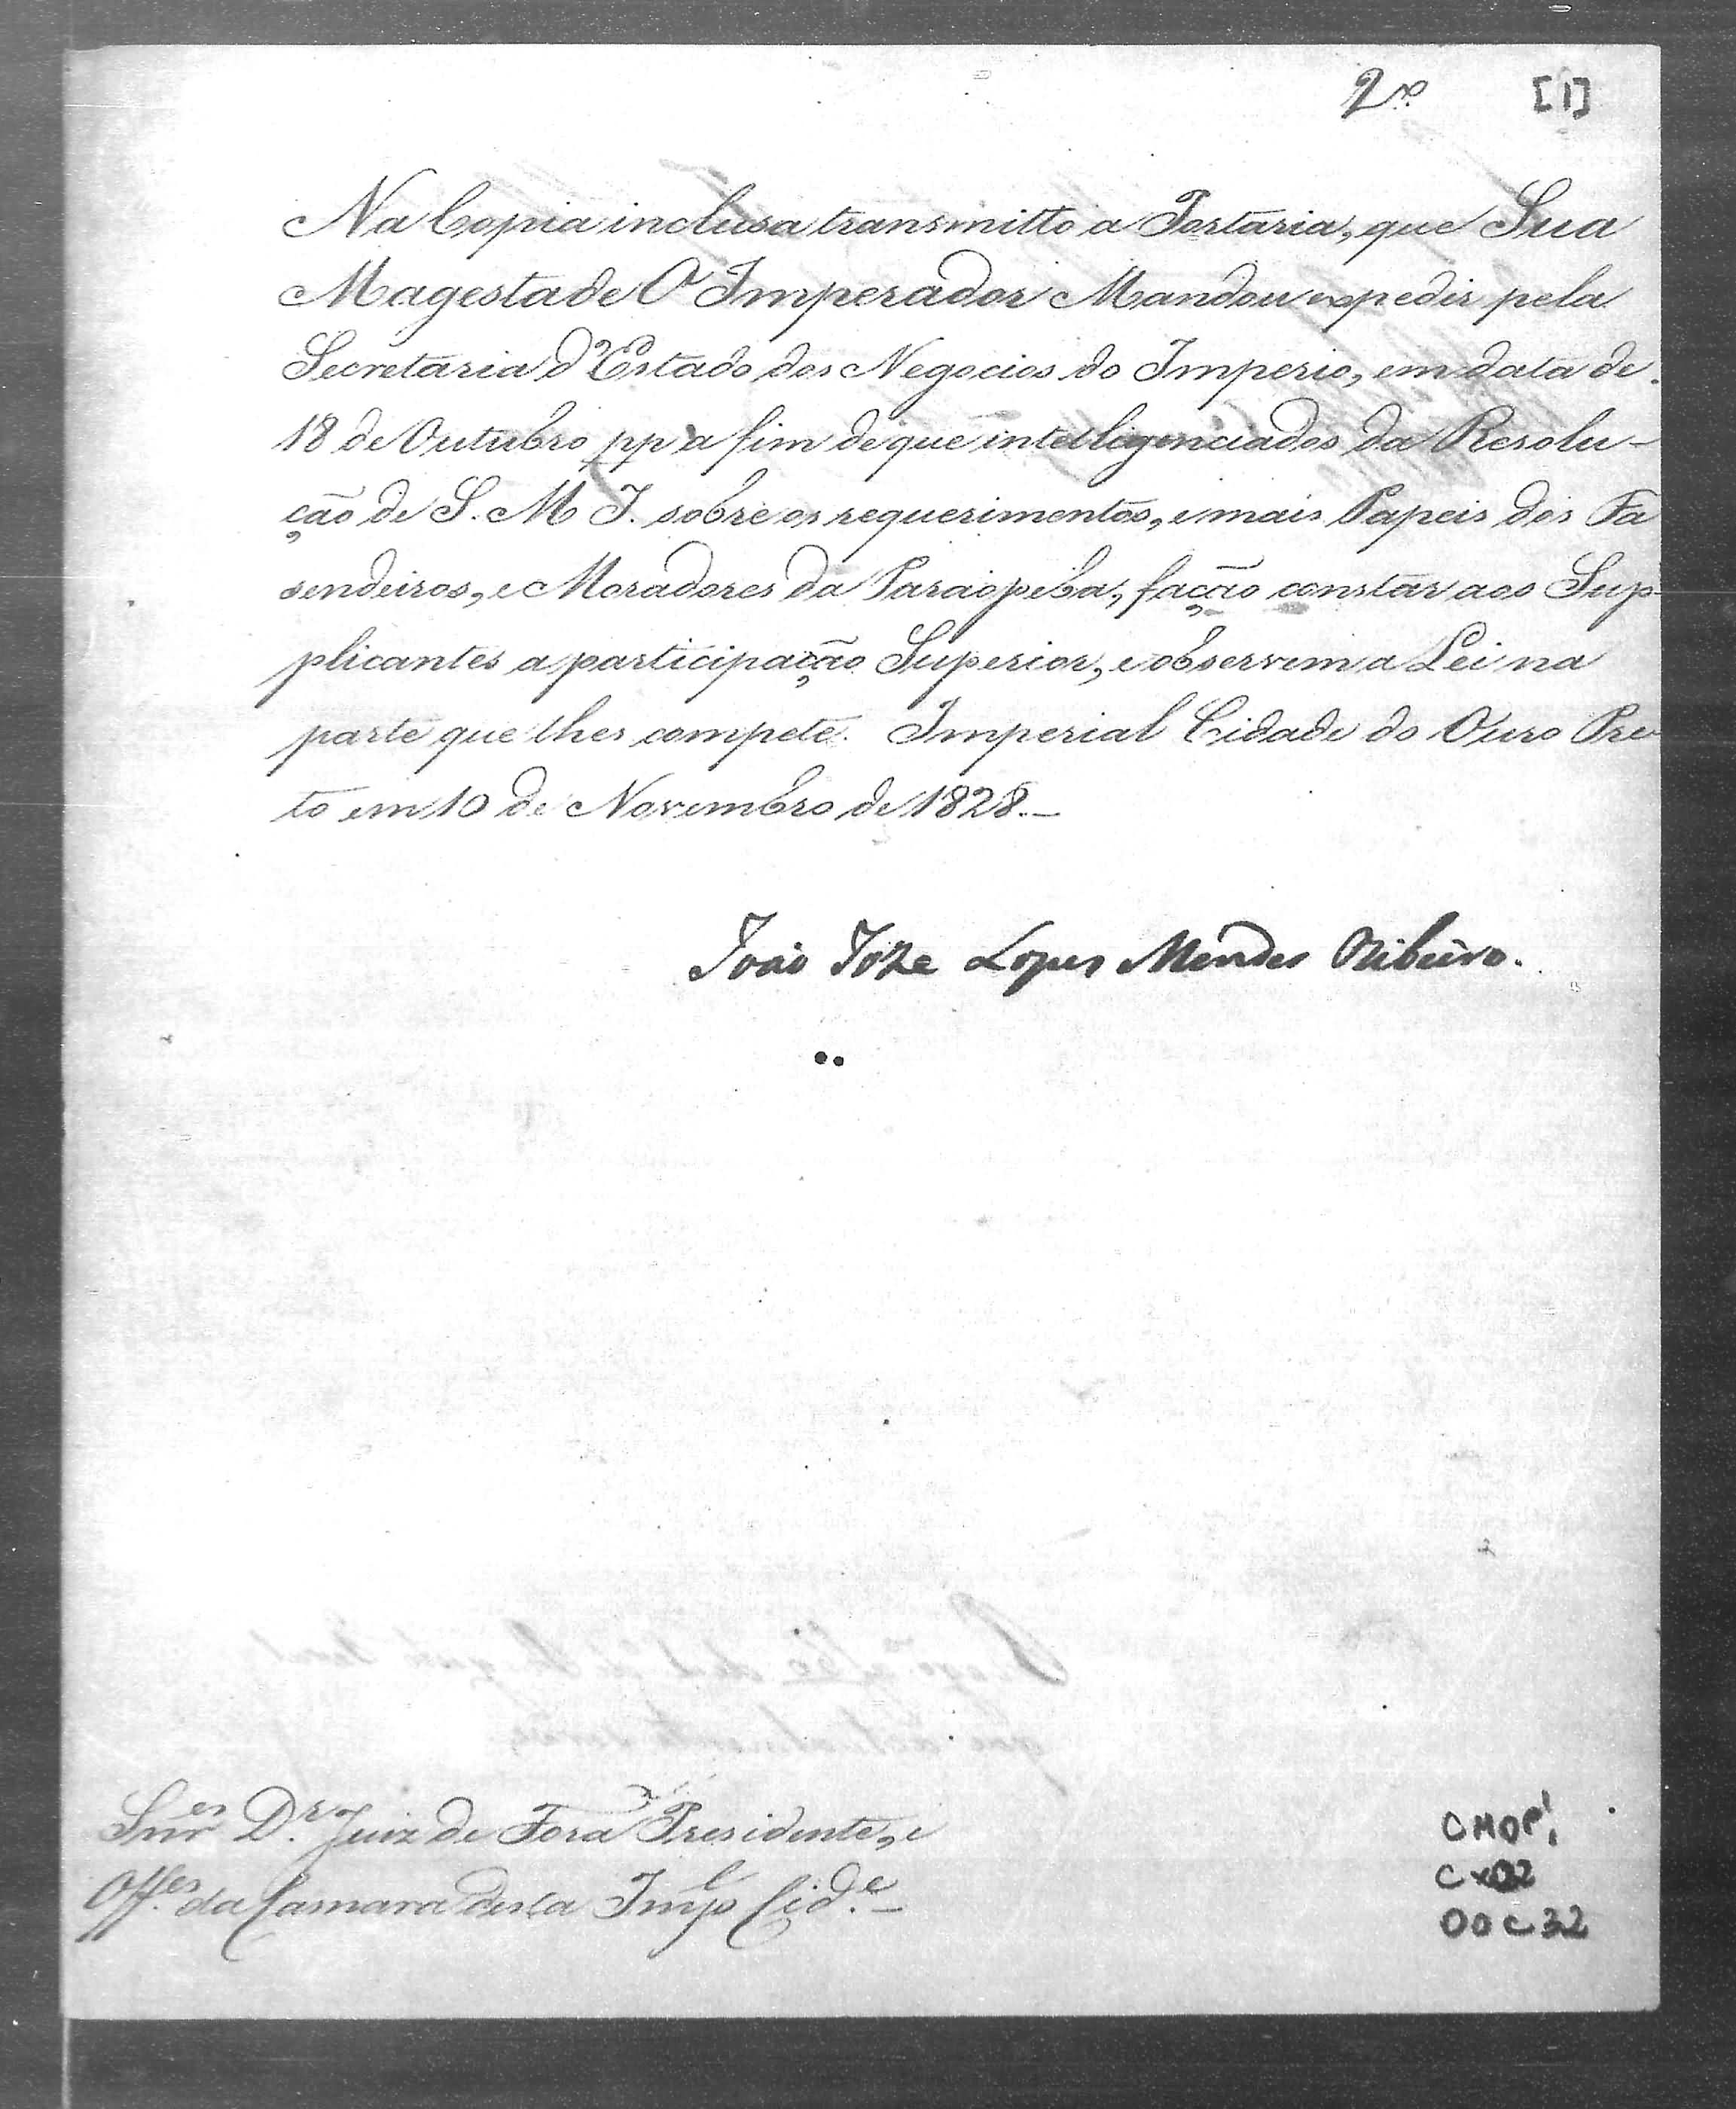 2ª [1]
Na Copia inclusa transmitto a Portaria, que Sua
Magestade O Imperador Mandou expedir pela
Secretaria d'Estado dos Negocios do Imperio, em data de
18 de Outubro pp a fim de que intelligenciados da Resolu-
ção de S. M. I. sobre os requerimentos, e mais Papeis dos Fa
sendeiros, e Moradores da Paraopeba, fação constar aos Sup-
plicantes a participação Superior, e observem a Lei na
parte que lhes compete. Imperial Cidade do Ouro Pre
to em 10 de Novembro de 1828._
João Joze Lopes Mendes Ribeiro.
Snr.es D.r Juiz de Fora Presidente, e
Off.es da Camara desta Imp.l Cid.e_
CMOP
Cx02
DOC 32